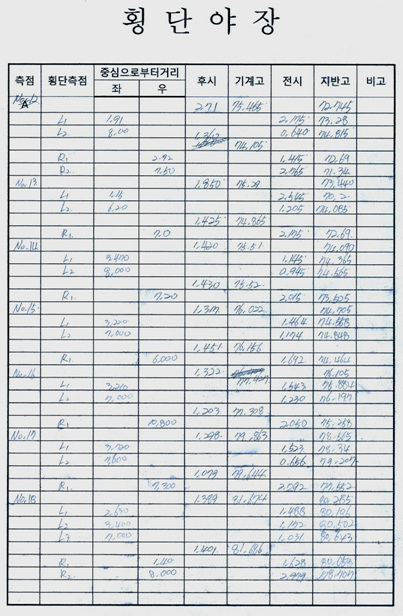 횡단야장
측점 횡단측점 중심으로부터거리 후시 기계고 전시 지반고 비고
좌 우
A 2.71 75.455 72.745
L1 1.91 2.175 73.28
L2 8.00 0.640 74.815
74.105
R1 2.92 1.415 72.69
R2 7.50 2.765 71.34
No.13 1.850 73.440
L1 1.15 70.2
L2 6.20 1.205 74.085
1.425
R1 7.0 2.175 72.69
No.14 1.420 75.51
L1 3.400 1.145 74.365
L2 8,000 0.945 74.565
1.430 75.52
R1 7.20 2.015 73.505
No.15 1.317 76.022 74.705
L1 3,200 1.464 74.558
L2 7,000 1.174 74.848
1.451 76.156
R1 6,000 1.692 74.464
No.16 1.322 77.427 76.105
L1 3,210 1.543 75.884
L2 7,000 1.230 76.197
1.203 77.308
R1 10,800 2.050 75.258
No.17 1.298 79.863 78.565
L1 1.523 78.34
L2 7,600 0.656 79.207
1.079 79.644
R1 7,300 2.092 77.552
No.18 1.389 81.674 80.285
L1 1.488
L2 3,400 1.172 80.502
L3 7,000 1.031 80.643
1.401 81.686
R1 1.40 1.628
R2 8,000